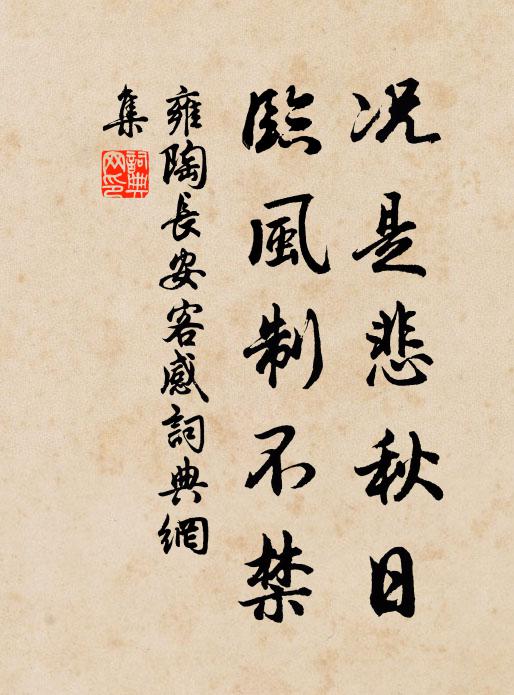 况是悲秋日
臨風制不禁
雍陶長安客感詞典網
集
詞典網印